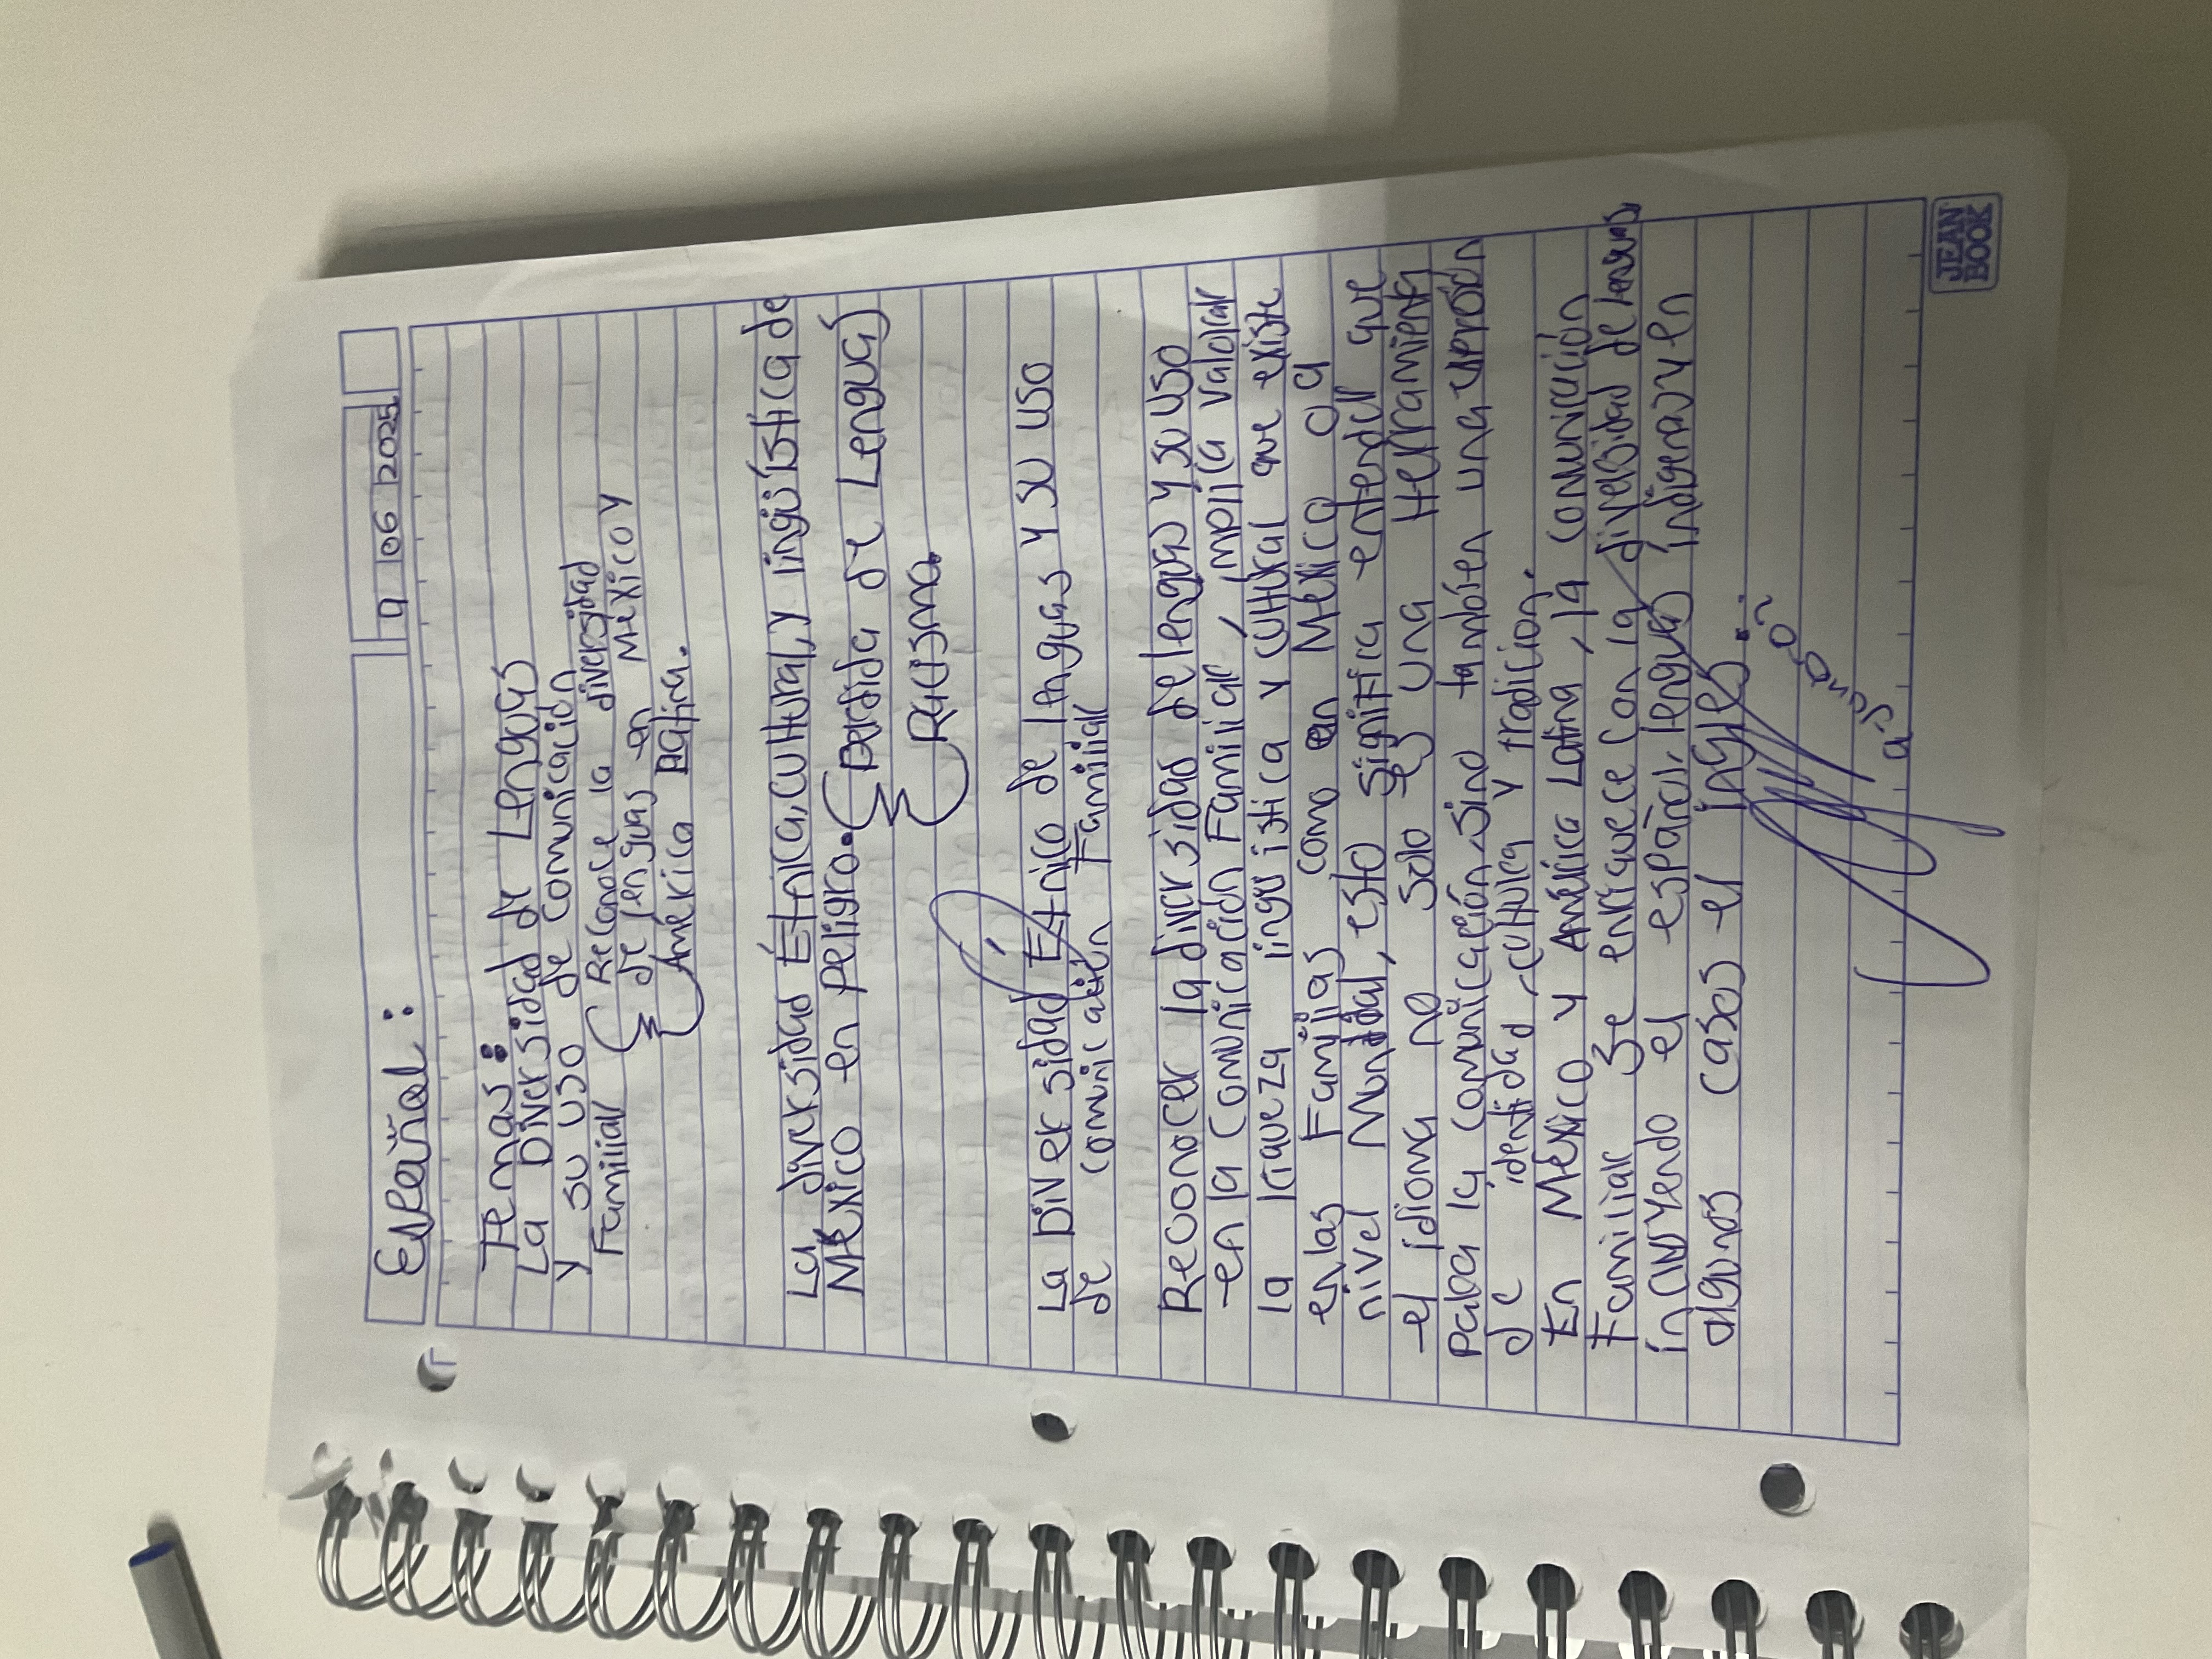 Español:
9 06 2025
Temas:
La Diversidad de Lenguas
y su uso de comunicación
Familiar
Reconoce la diversidad
de lenguas en México y
América Latina.
La diversidad Étnica, cultural, y lingüística de
México en peligro.
Perdida de Lengua
Racismo.
La Diversidad Étnico de lenguas y su uso
de comunicación Familiar
Reconocer la diversidad de lenguas y su uso
en la comunicación Familiar, implica valorar
la riqueza lingüistica y cultural que existe
en las Familias como en México o a
nivel Mundial, esto significa entender que
el idioma no solo es una Herramienta
para la comunicación, sino también una
de identidad, cultura y tradicion.
En México y América Latina, la comunicación
Familiar se enriquece con la diversidad de lenguas
incluyendo el español, lenguas indigenas y en
algunos casos el inglés.
9 Junio
JEAN
BOOK